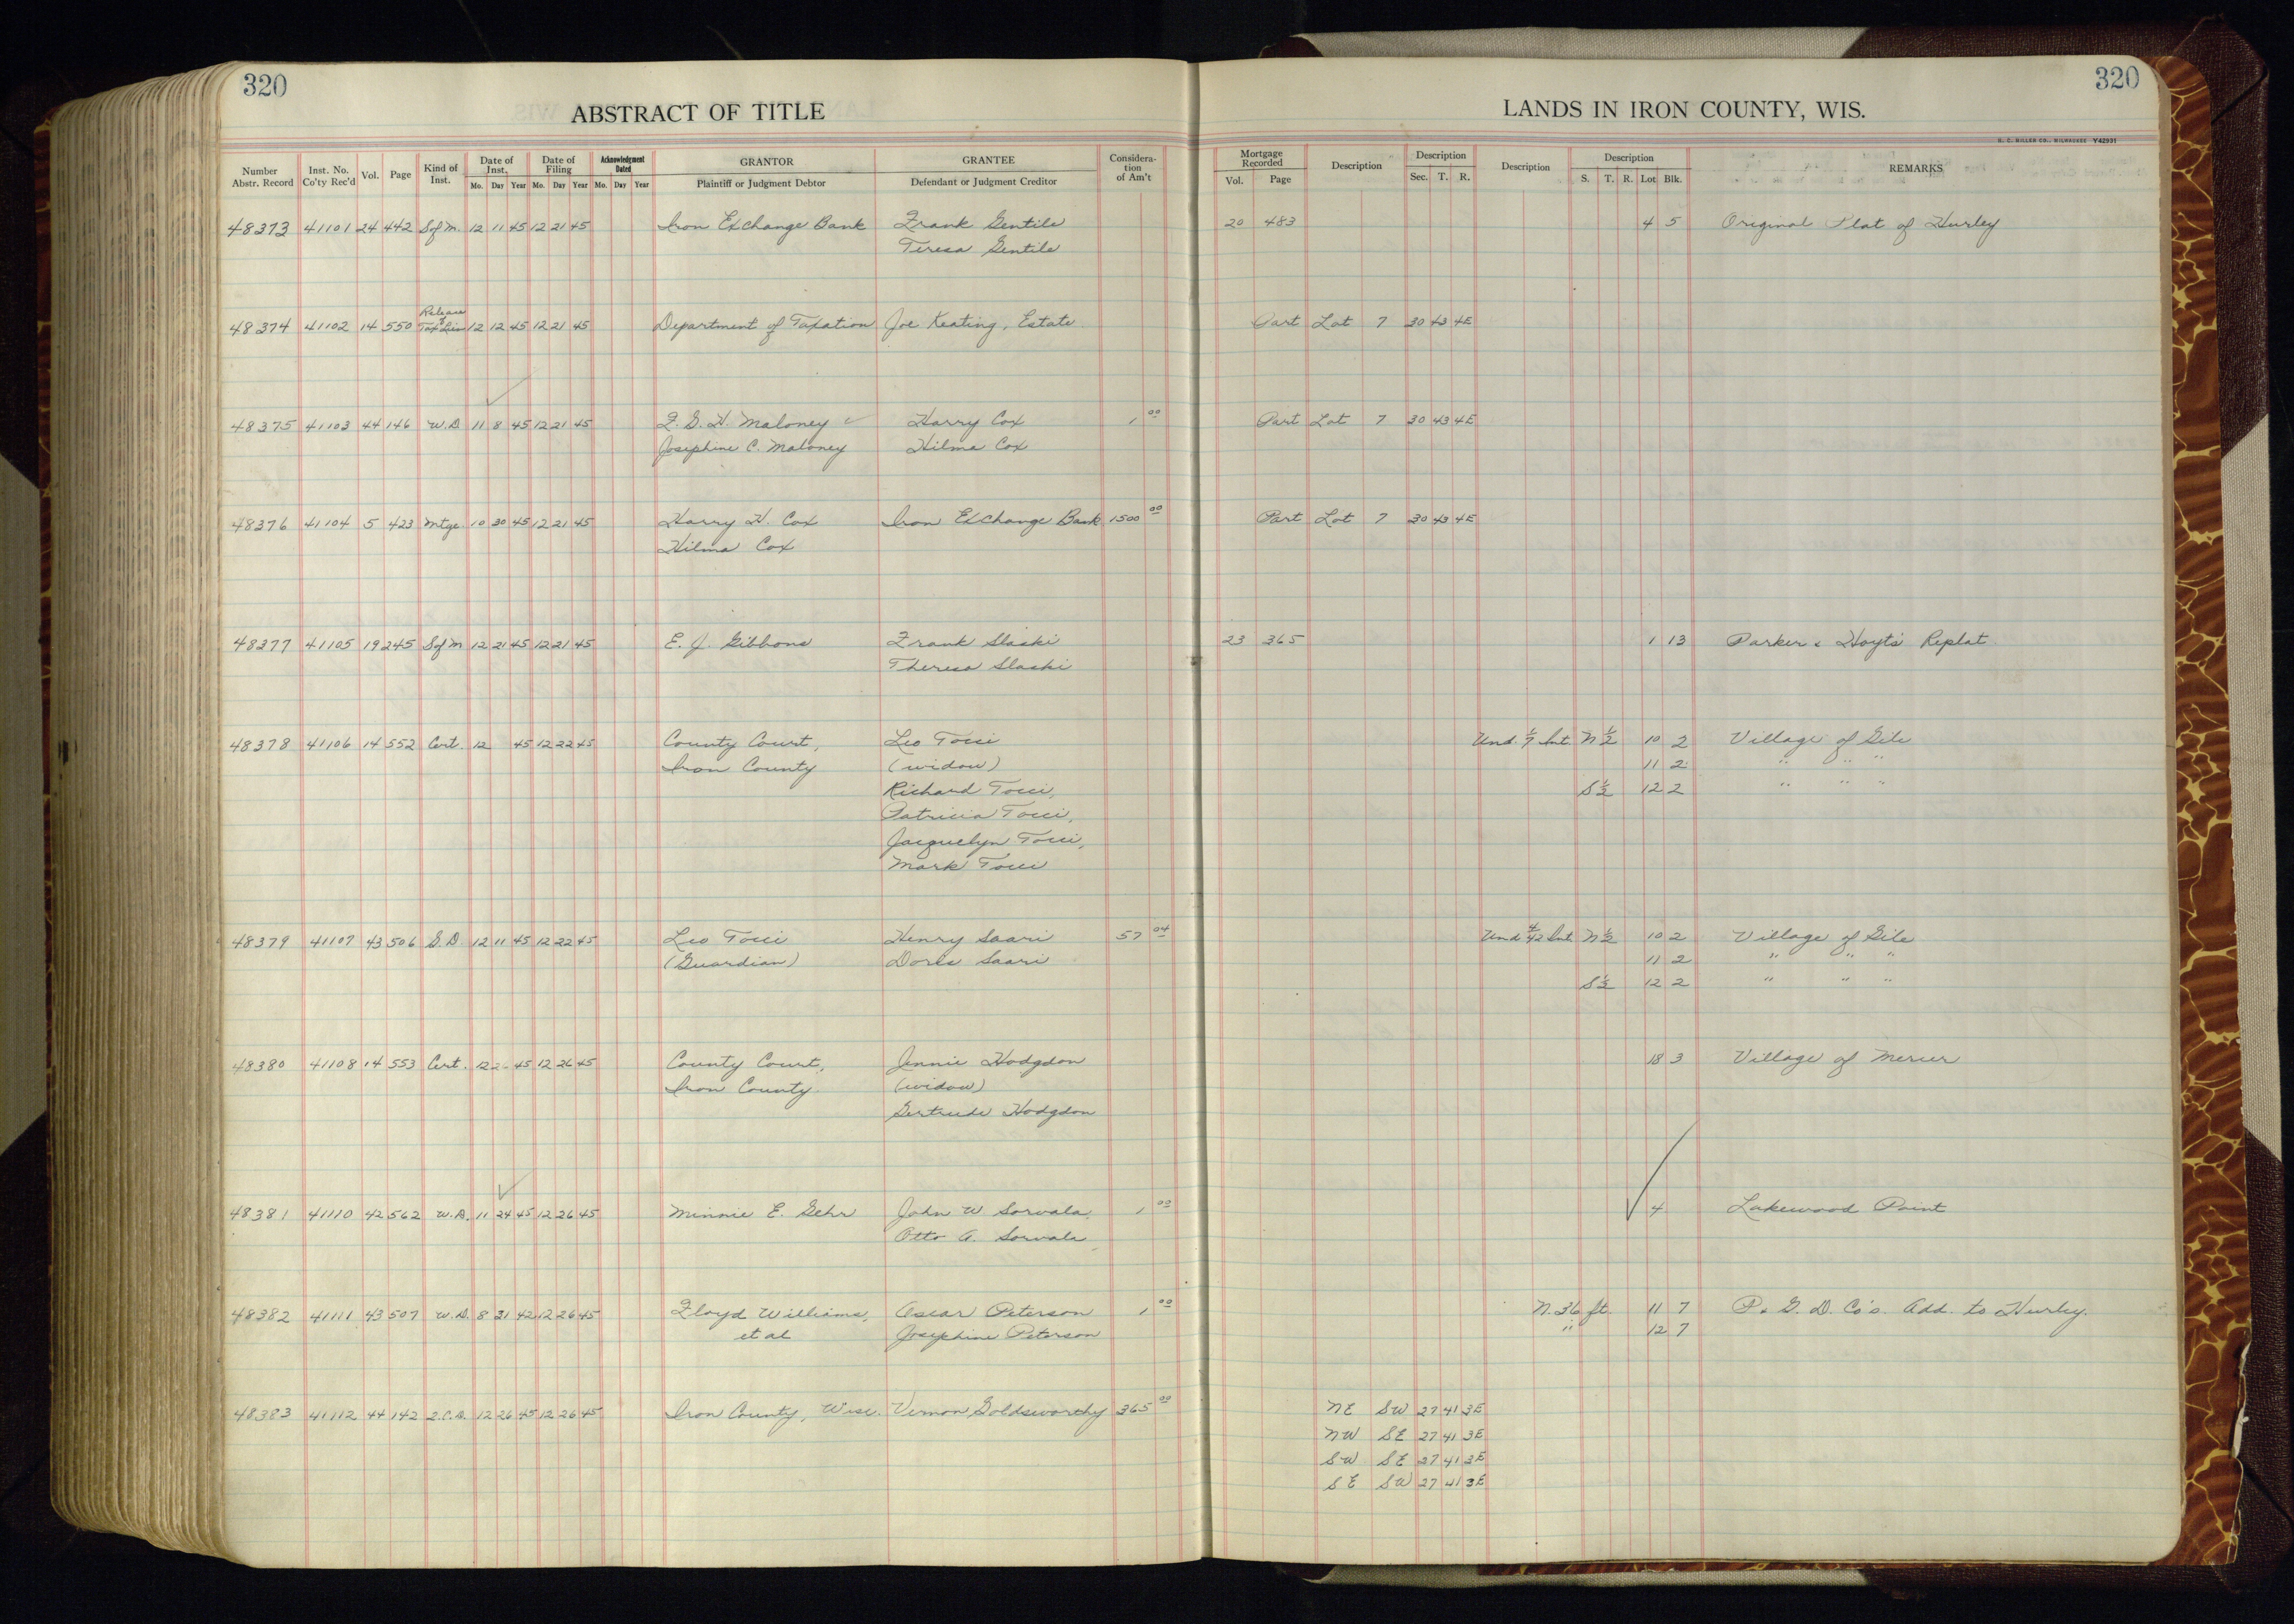 320
320
ABSTRACT OF TITLE
LANDS IN IRON COUNTY, WIS.
H. C. MILLER CO., MILWAUKEE Y42931
Number Abstr. Record Inst. No. Co'ty Rec'd Vol. Page Kind of Inst. Date of Inst. Mo. Day Year Date of Filing Mo. Day Year Acknowledgment Dated Mo. Day Year GRANTOR Plaintiff or Judgment Debtor GRANTEE Defendant or Judgment Creditor Consideration of Am't Mortgage Recorded Vol. Page Description Description Sec. T. R. Description Description S. T. R. Lot Blk. REMARKS
48373 41101 24 442 S of M. 12 11 45 12 21 45 Iron Exchange Bank Frank Gentile 20 483 4 5 Original Plat of Hurley
Teresa Gentile
48374 41102 14 550 Release of Tax Lien 12 12 45 12 21 45 Department of Taxation Joe Keating, Estate Part Lot 7 30 43 4E
48375 41103 44 146 W.D. 11 8 45 12 21 45 F. G. H. Maloney Harry Cox 1 00 Part Lot 7 30 43 4E
Josephine C. Maloney Hilma Cox
48376 41104 5 423 Mtge. 10 30 45 12 21 45 Harry H. Cox Iron Exchange Bank 1500 00 Part Lot 7 30 43 4E
Hilma Cox
48377 41105 19 245 S of M 12 21 45 12 21 45 E. J. Gibbons Frank Slaski 23 365 1 13 Parker & Hoyt's Replat
Theresa Slaski
48378 41106 14 552 Cert. 12 45 12 22 45 County Court, Leo Tocci Und. 1/7 Int. N 1/2 10 2 Village of Gile
Iron County (widow) 11 2 " " "
Richard Tocci, S 1/2 12 2 " " "
Patricia Tocci,
Jacquelyn Tocci,
Mark Tocci
48379 41107 43 506 G.D. 12 11 45 12 22 45 Leo Tocci Henry Saari 57 04 Und 4/42 Int N 1/2 10 2 Village of Gile
(Guardian) Doris Saari 11 2 " " "
S 1/2 12 2 " " "
48380 41108 14 553 Cert. 12 45 12 26 45 County Court, Jennie Hodgdon 18 3 Village of Mercer
Iron County. (widow)
Gertrude Hodgdon
48381 41110 42 562 W.D. 11 24 45 12 26 45 Minnie E. Gehr John W Sorvala 1 00 4 Lakewood Point
Otto A. Sorvala
48382 41111 43 507 W.D. 8 31 42 12 26 45 Floyd Williams, Oscar Peterson 1 00 N. 36 ft. 11 7 P. & G. D. Co's. Add. to Hurley.
et al Josephine Peterson " 12 7
48383 41112 44 142 Q.C.D. 12 26 45 12 26 45 Iron County, Wisc. Vernon Goldsworthy 365 00 NE SW 27 41 3E
NW SE 27 41 3E
SW SE 27 41 3E
SE SW 27 41 3E